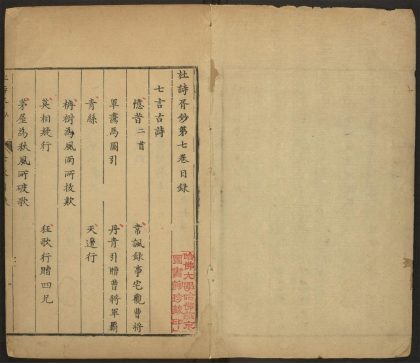 杜詩胥鈔第七卷目錄
七言古詩
憶昔二首
韋諷錄事宅觀曹將
軍畫馬圖引
丹青引贈曹將軍霸
青絲
天邊行
楠樹為風雨所拔歎
莫相疑行
狂歌行贈四兄
茅屋為秋風所破歌
哈佛大學哈佛燕京
圖書館珍藏印